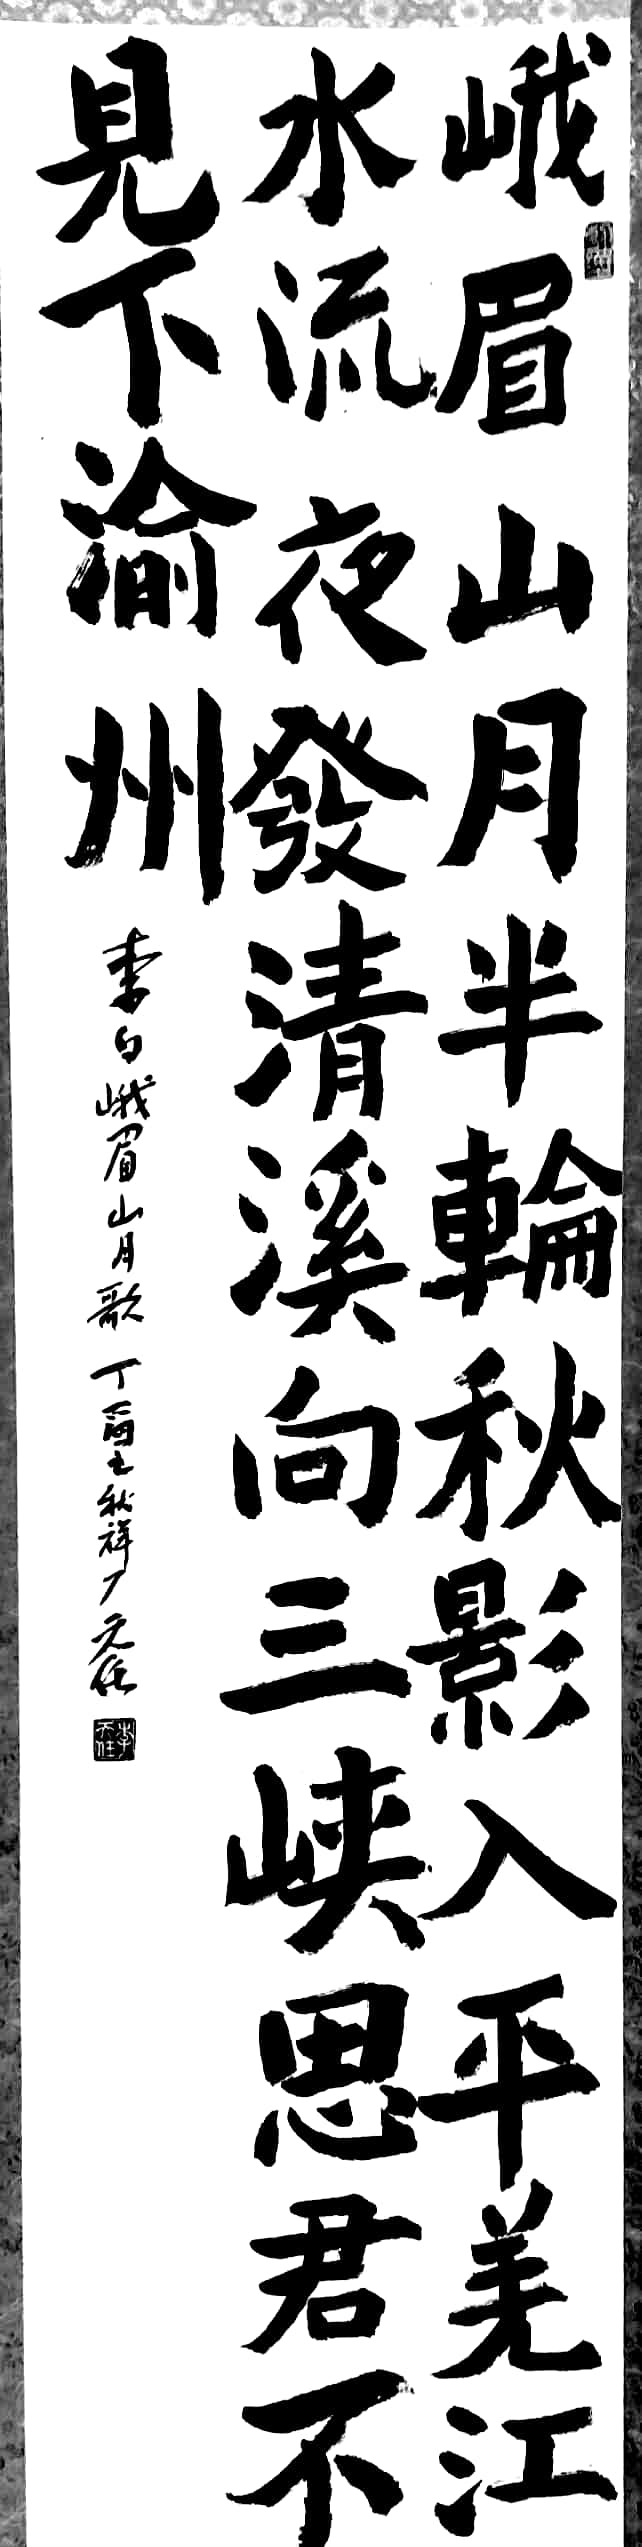 峨眉山月半輪秋影入平羌江
水流夜發清溪向三峽思君不
見下渝州
李白峨眉山月歌丁酉之秋祥厂天任
李天任